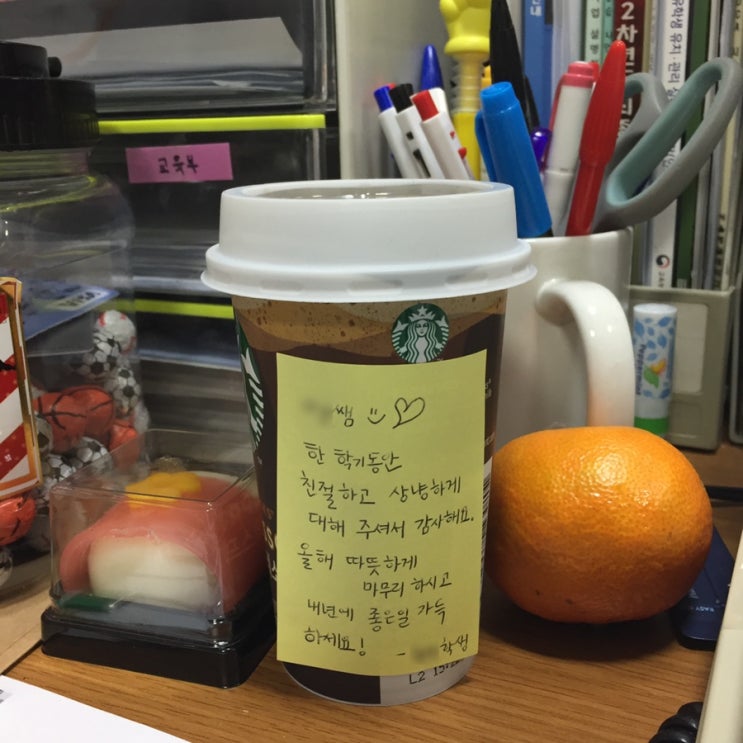 교육부
2차
유학생 유치·관리
쌤
한 학기동안
친절하고 상냥하게
대해 주셔서 감사해요.
올해 따뜻하게
마무리 하시고
내년에 좋은일 가득
하세요! - 학생
L2